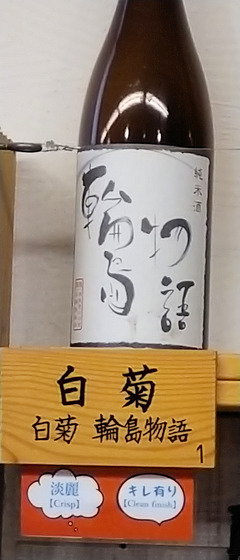 純米酒
輪島
物語
白菊
白菊 輪島物語
1
淡麗
【Crisp】
キレ有り
【Clean finish】